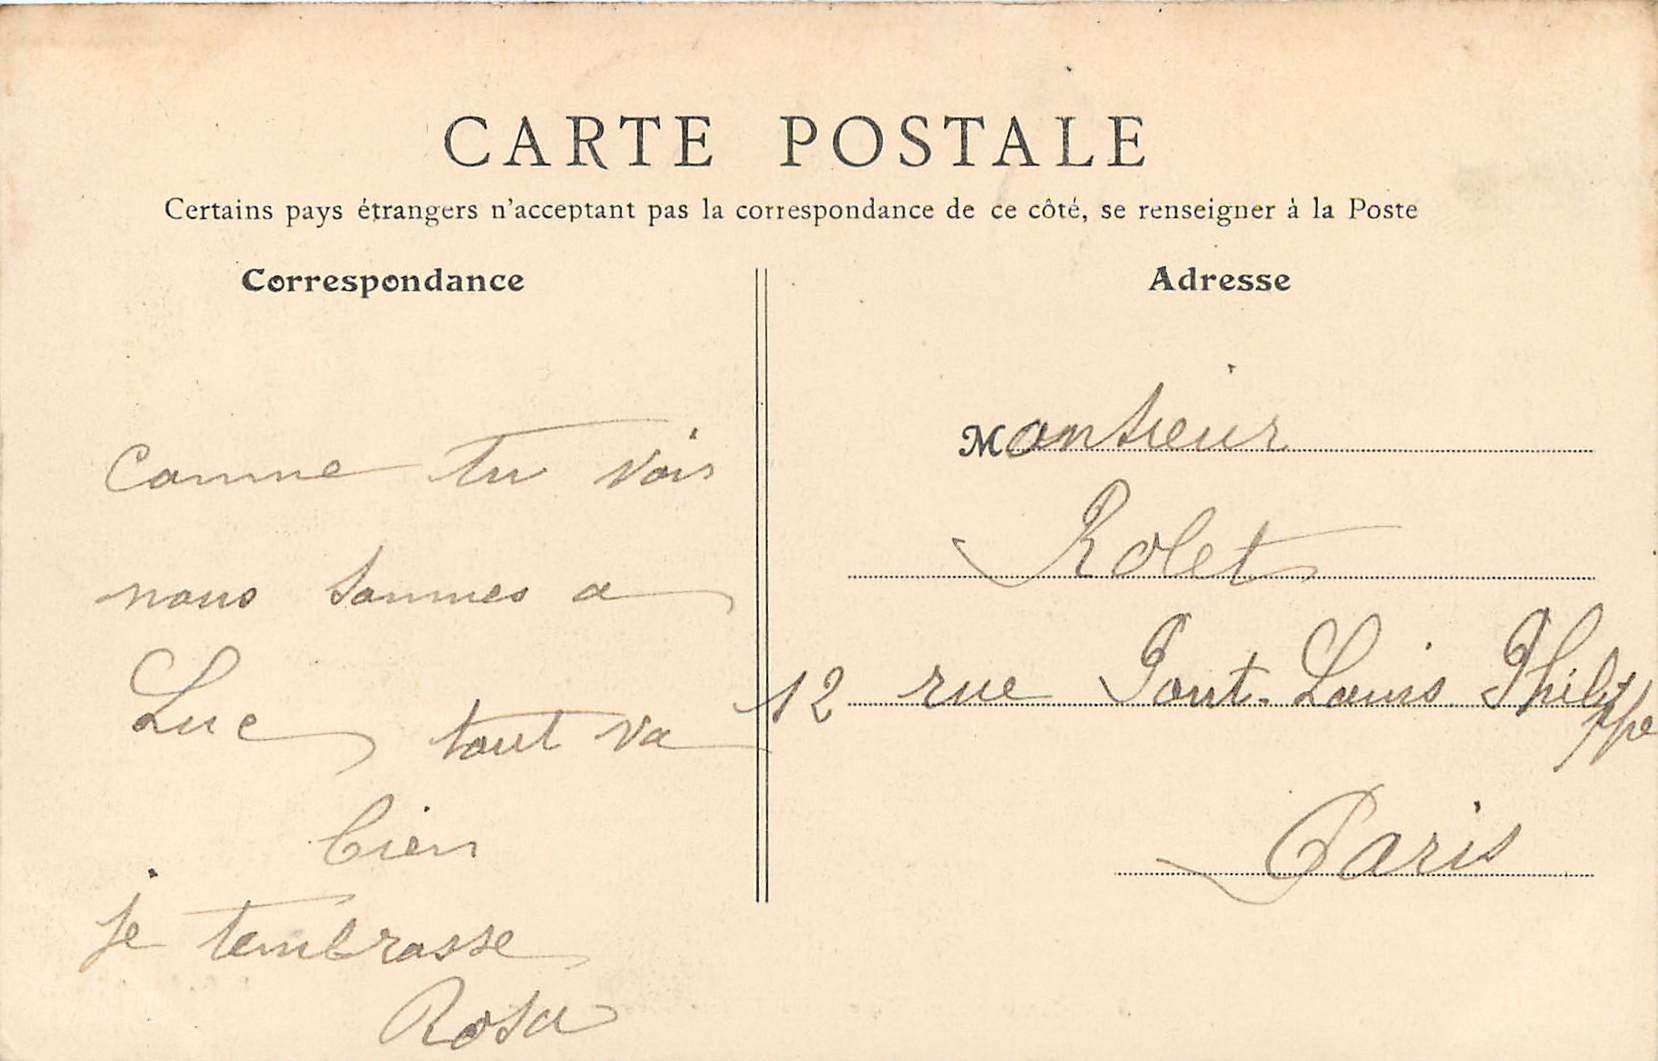 CARTE POSTALE
Certains pays étrangers n'acceptant pas la correspondance de ce côté, se renseigner à la Poste
Correspondance
comme tu vois
nous sommes a
Luc tout va
bien
je tembrasse
Rosa
Adresse
Monsieur
Rolet
12 rue Pont-Louis Philippe
Paris